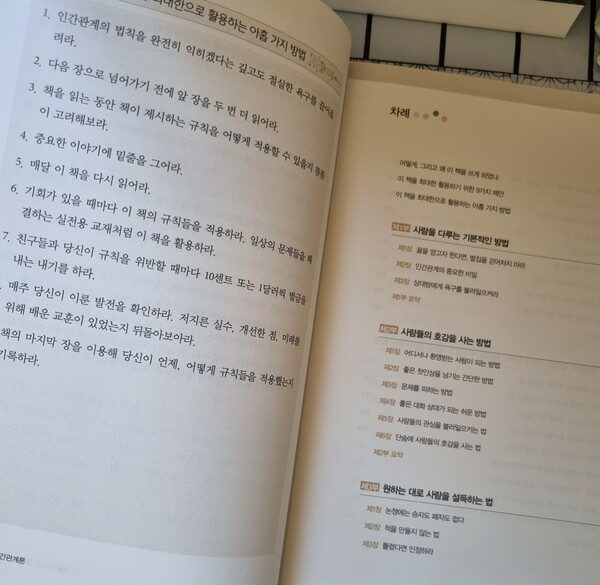 최대한으로 활용하는 아홉 가지 방법
1. 인간관계의 법칙을 완전히 익히겠다는 깊고도 절실한 욕구를 끌어올
려라.
2. 다음 장으로 넘어가기 전에 앞 장을 두 번 더 읽어라.
3. 책을 읽는 동안 책이 제시하는 규칙을 어떻게 적용할 수 있을지 틈틈
이 고려해보라.
4. 중요한 이야기에 밑줄을 그어라.
5. 매달 이 책을 다시 읽어라.
6. 기회가 있을 때마다 이 책의 규칙들을 적용하라. 일상의 문제들을 해
결하는 실전용 교재처럼 이 책을 활용하라.
7. 친구들과 당신이 규칙을 위반할 때마다 10센트 또는 1달러의 벌금을
내는 내기를 하라.
매주 당신이 이룬 발전을 확인하라. 저지른 실수, 개선한 점, 미래를
위해 배운 교훈이 있었는지 뒤돌아보아라.
책의 마지막 장을 이용해 당신이 언제, 어떻게 규칙들을 적용했는지
기록하라.
간관계론
차례
어떻게, 그리고 왜 이 책을 쓰게 되었나
이 책을 최대한 활용하기 위한 9가지 제안
이 책을 최대한으로 활용하는 아홉 가지 방법
제1부 사람을 다루는 기본적인 방법
제1장 꿀을 얻고자 한다면, 벌집을 걷어차지 마라
제2장 인간관계의 중요한 비밀
제3장 상대방에게 욕구를 불러일으켜라
제1부 요약
제2부 사람들의 호감을 사는 방법
제1장 어디서나 환영받는 사람이 되는 방법
제2장 좋은 첫인상을 남기는 간단한 방법
제3장 문제를 피하는 방법
제4장 좋은 대화 상대가 되는 쉬운 방법
제5장 사람들의 관심을 불러일으키는 법
제6장 단숨에 사람들의 호감을 사는 방법
제2부 요약
제3부 원하는 대로 사람을 설득하는 법
제1장 논쟁에는 승자도 패자도 없다
제2장 적을 만들지 않는 법
제3장 틀렸다면 인정하라